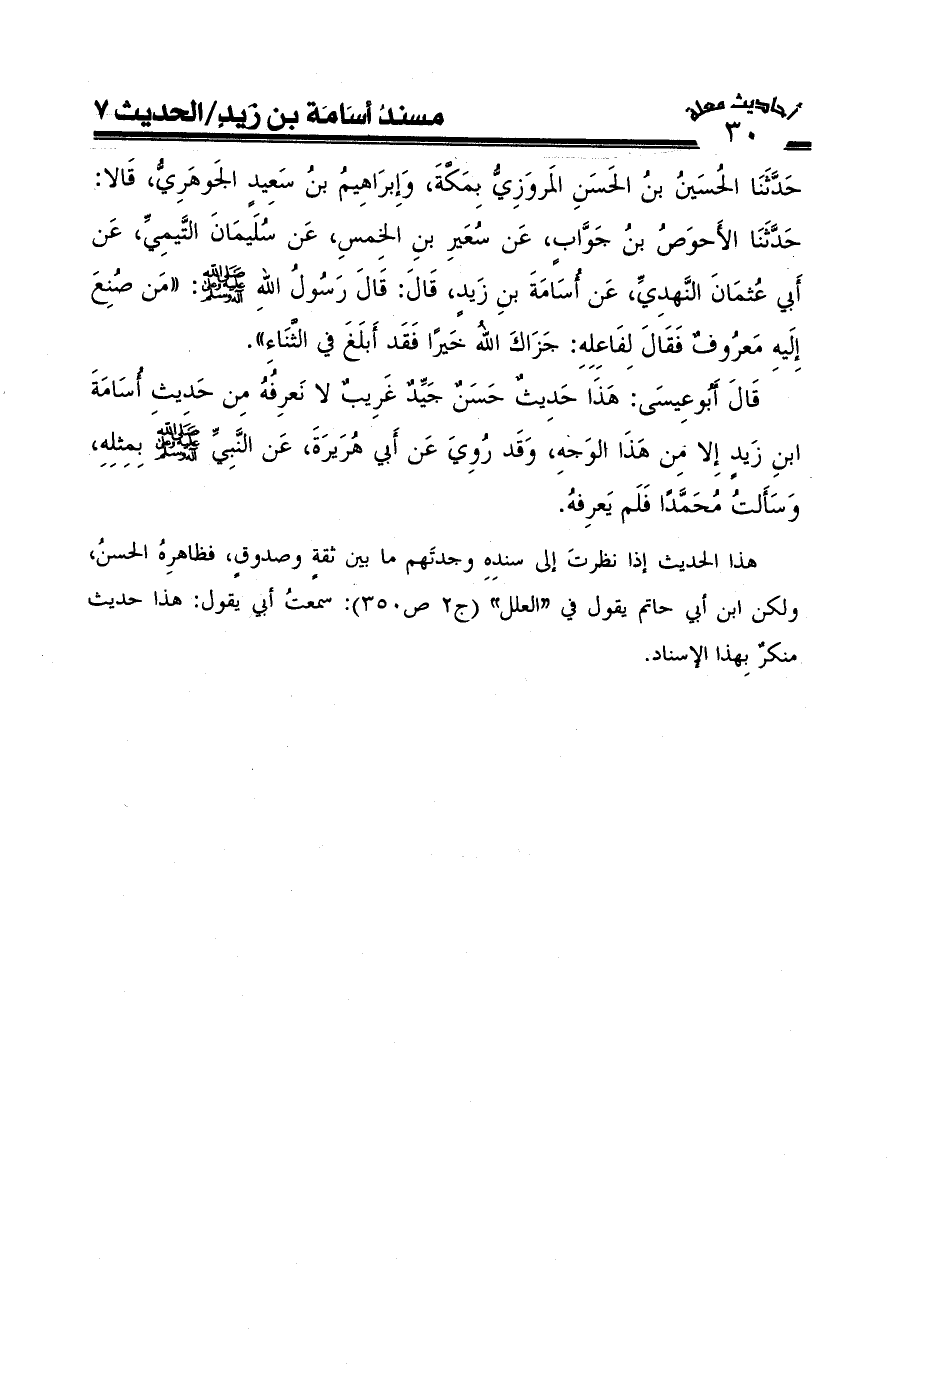 أحاديث معلة
٣٠
مسند أسَامَة بن زَيدٍ/الحديث ٧
حَدَّثَنَا الحُسَينُ بنُ الحَسَنِ المَروَزِيُّ بِمَكَّةَ، وَإِبرَاهِيمُ بنُ سَعِيدٍ الجَوهَرِيُّ، قَالا:
حَدَّثَنَا الأَحوَصُ بنُ جَوَّابٍ، عَن سُعَيرِ بنِ الخِمسِ، عَن سُلَيمَانَ التَّيمِيِّ، عَن
أَبي عُثمَانَ النَّهدِيِّ، عَن أُسَامَةَ بنِ زَيدٍ، قَالَ: قَالَ رَسُولُ اللهِ ﷺ: «مَن صُنِعَ
إِلَيهِ مَعرُوفٌ فَقَالَ لِفَاعِلِهِ: جَزَاكَ اللهُ خَيرًا فَقَد أَبلَغَ في الثَّنَاءِ».
قَالَ أَبُوعِيسَى: هَذَا حَدِيثٌ حَسَنٌ جَيِّدٌ غَرِيبٌ لا نَعرِفُهُ مِن حَدِيثِ أُسَامَةَ
ابنِ زَيدٍ إِلا مِن هَذَا الوَجهِ، وَقَد رُوِيَ عَن أَبي هُرَيرَةَ، عَن النَّبِيِّ ﷺ بِمِثلِهِ،
وَسَأَلتُ مُحَمَّدًا فَلَم يَعرِفهُ.
هذا الحديث إذا نظرتَ إلى سندِهِ وجدتَهم ما بين ثقةٍ وصدوقٍ، فظاهرِهُ الحسنُ،
ولكن ابن أبي حاتم يقول في «العلل» (ج٢ ص٣٥٠): سمعتُ أبي يقول: هذا حديث
منكرٌ بِهذا الإسناد.